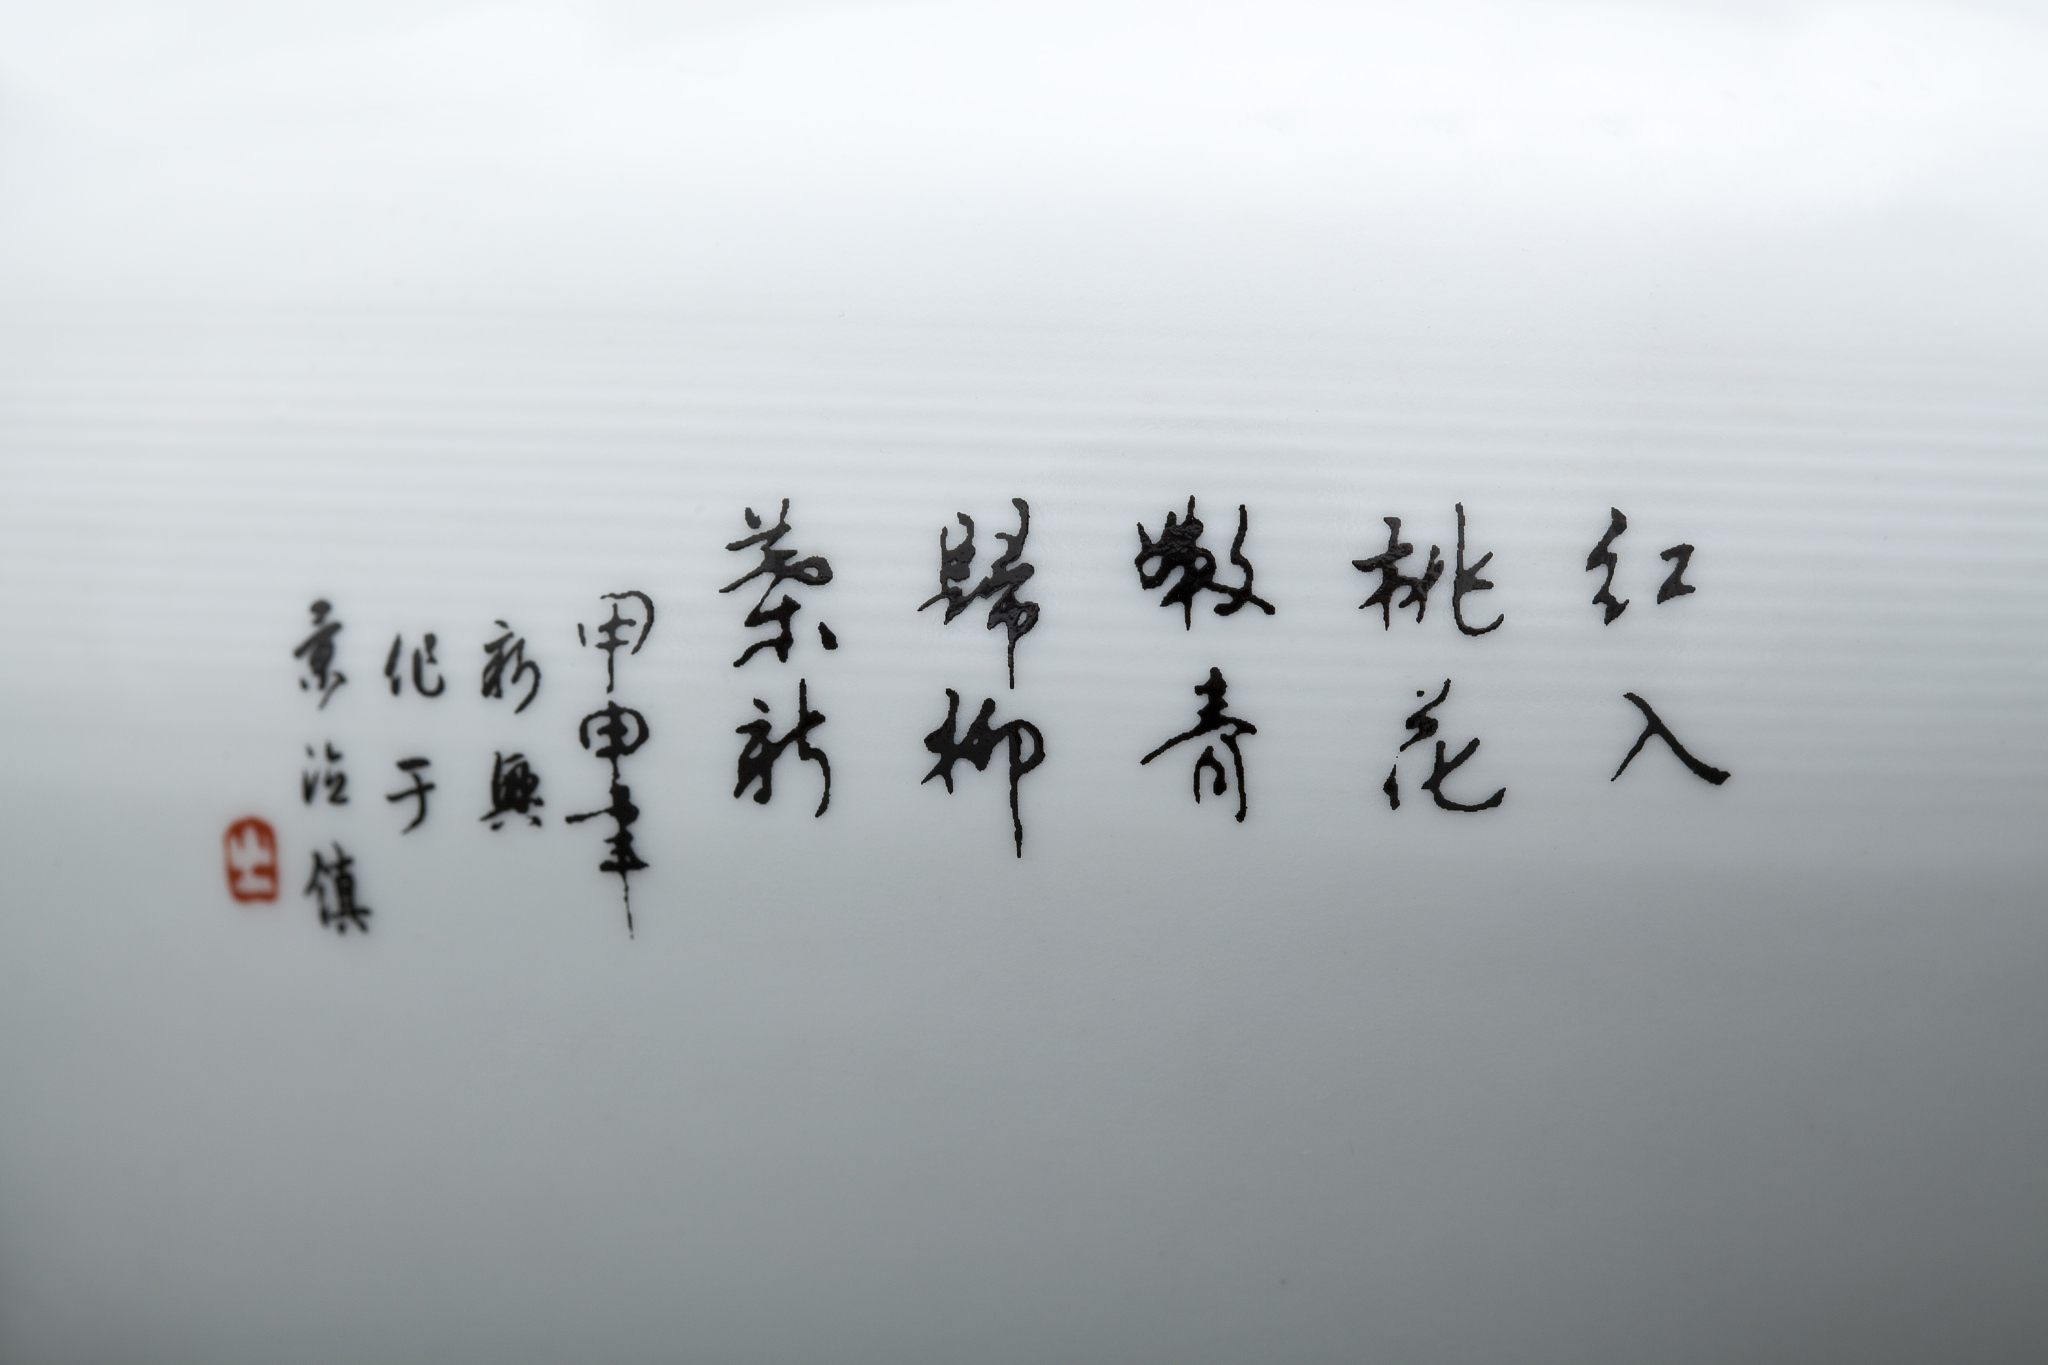 红入
桃花
嫩青
歸柳
葉新
甲申年
新興
作于
景德鎮